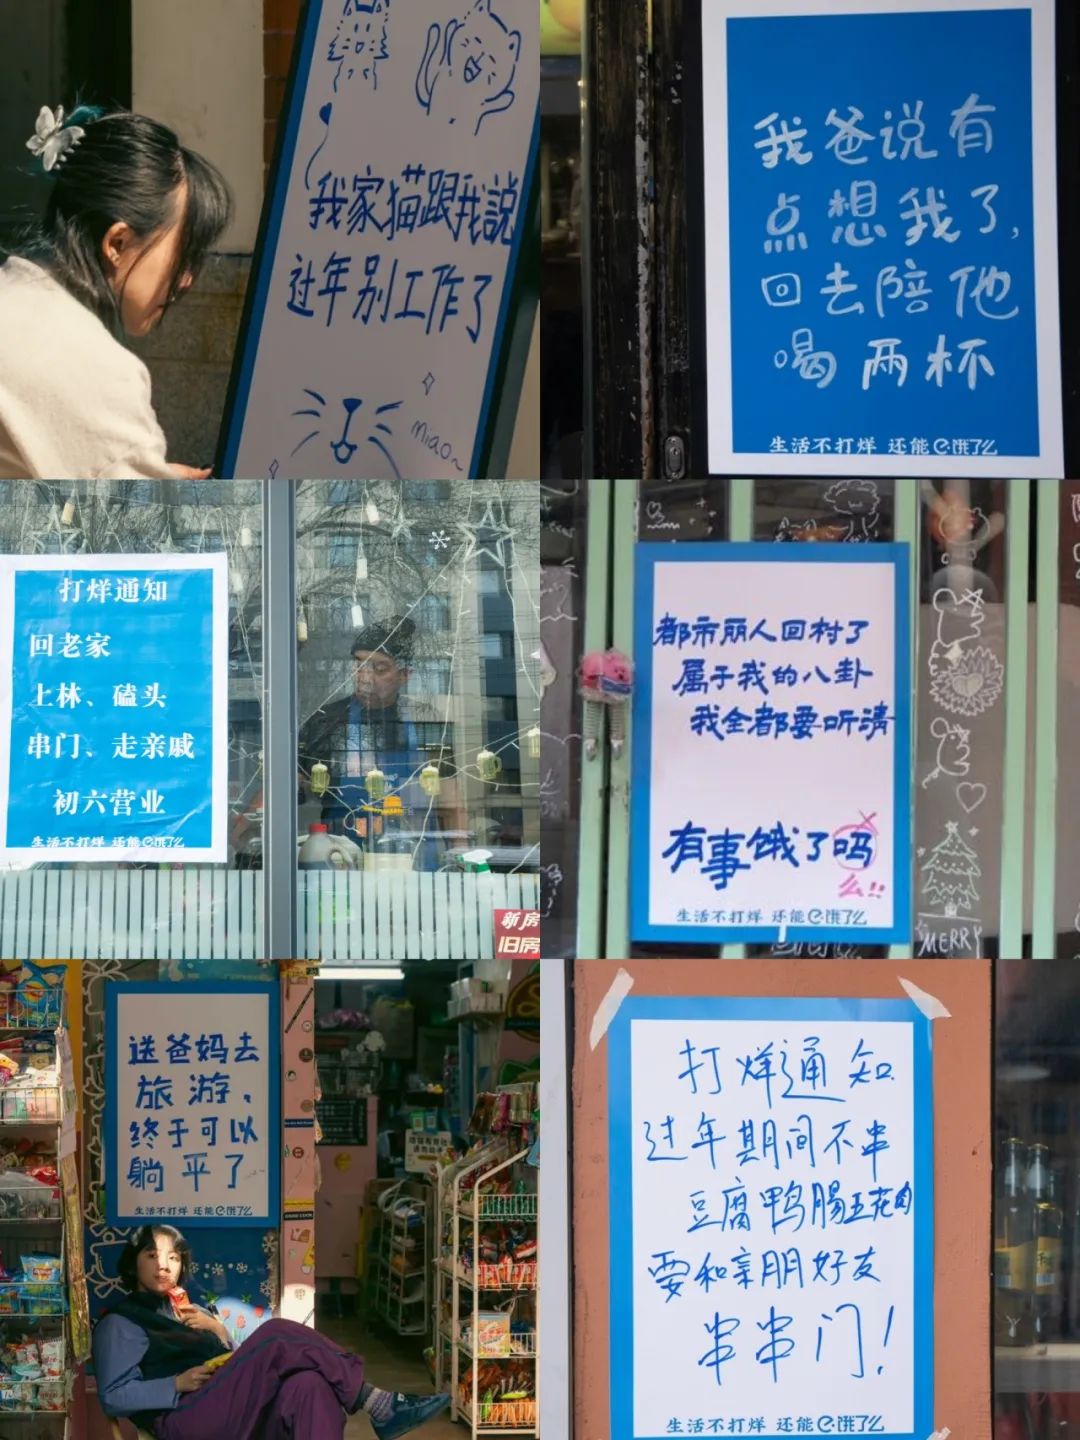 我家猫跟我说
过年别工作了
miao~
我爸说有
点想我了,
回去陪他
喝两杯
生活不打烊 还能e饿了么
打烊通知
回老家
上林、磕头
串门、走亲戚
初六营业
生活不打烊 还能e饿了么
新房
旧房
都市丽人回村了
属于我的八卦
我全都要听清
有事饿了吗
么!!
生活不打烊 还能e饿了么
MERRY
送爸妈去
旅游,
终于可以
躺平了
生活不打烊 还能e饿了么
打烊通知
过年期间不串
豆腐鸭肠五花肉
要和亲朋好友
串串门!
生活不打烊 还能e饿了么